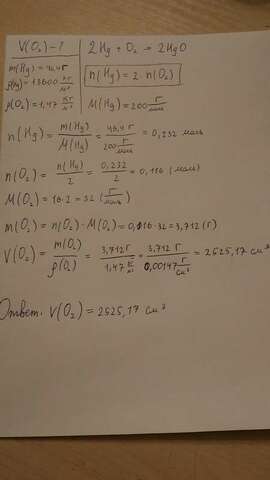 V(O₂) - ?
m(Hg) = 46,4 г
ρ(Hg) = 13600 кг/м³
ρ(O₂) = 1,47 кг/м³
2Hg + O₂ → 2HgO
n(Hg) = 2 · n(O₂)
M(Hg) = 200 г/моль
n(Hg) = m(Hg)/M(Hg) = 46,4 г/200 г/моль = 0,232 моль
n(O₂) = n(Hg)/2 = 0,232/2 = 0,116 (моль)
M(O₂) = 16·2 = 32 (г/моль)
m(O₂) = n(O₂) · M(O₂) = 0,116·32 = 3,712 (г)
V(O₂) = m(O₂)/ρ(O₂) = 3,712 г/1,47 кг/м³ = 3,712 г/0,00147 г/см³ = 2525,17 см³
Ответ: V(O₂) = 2525,17 см³